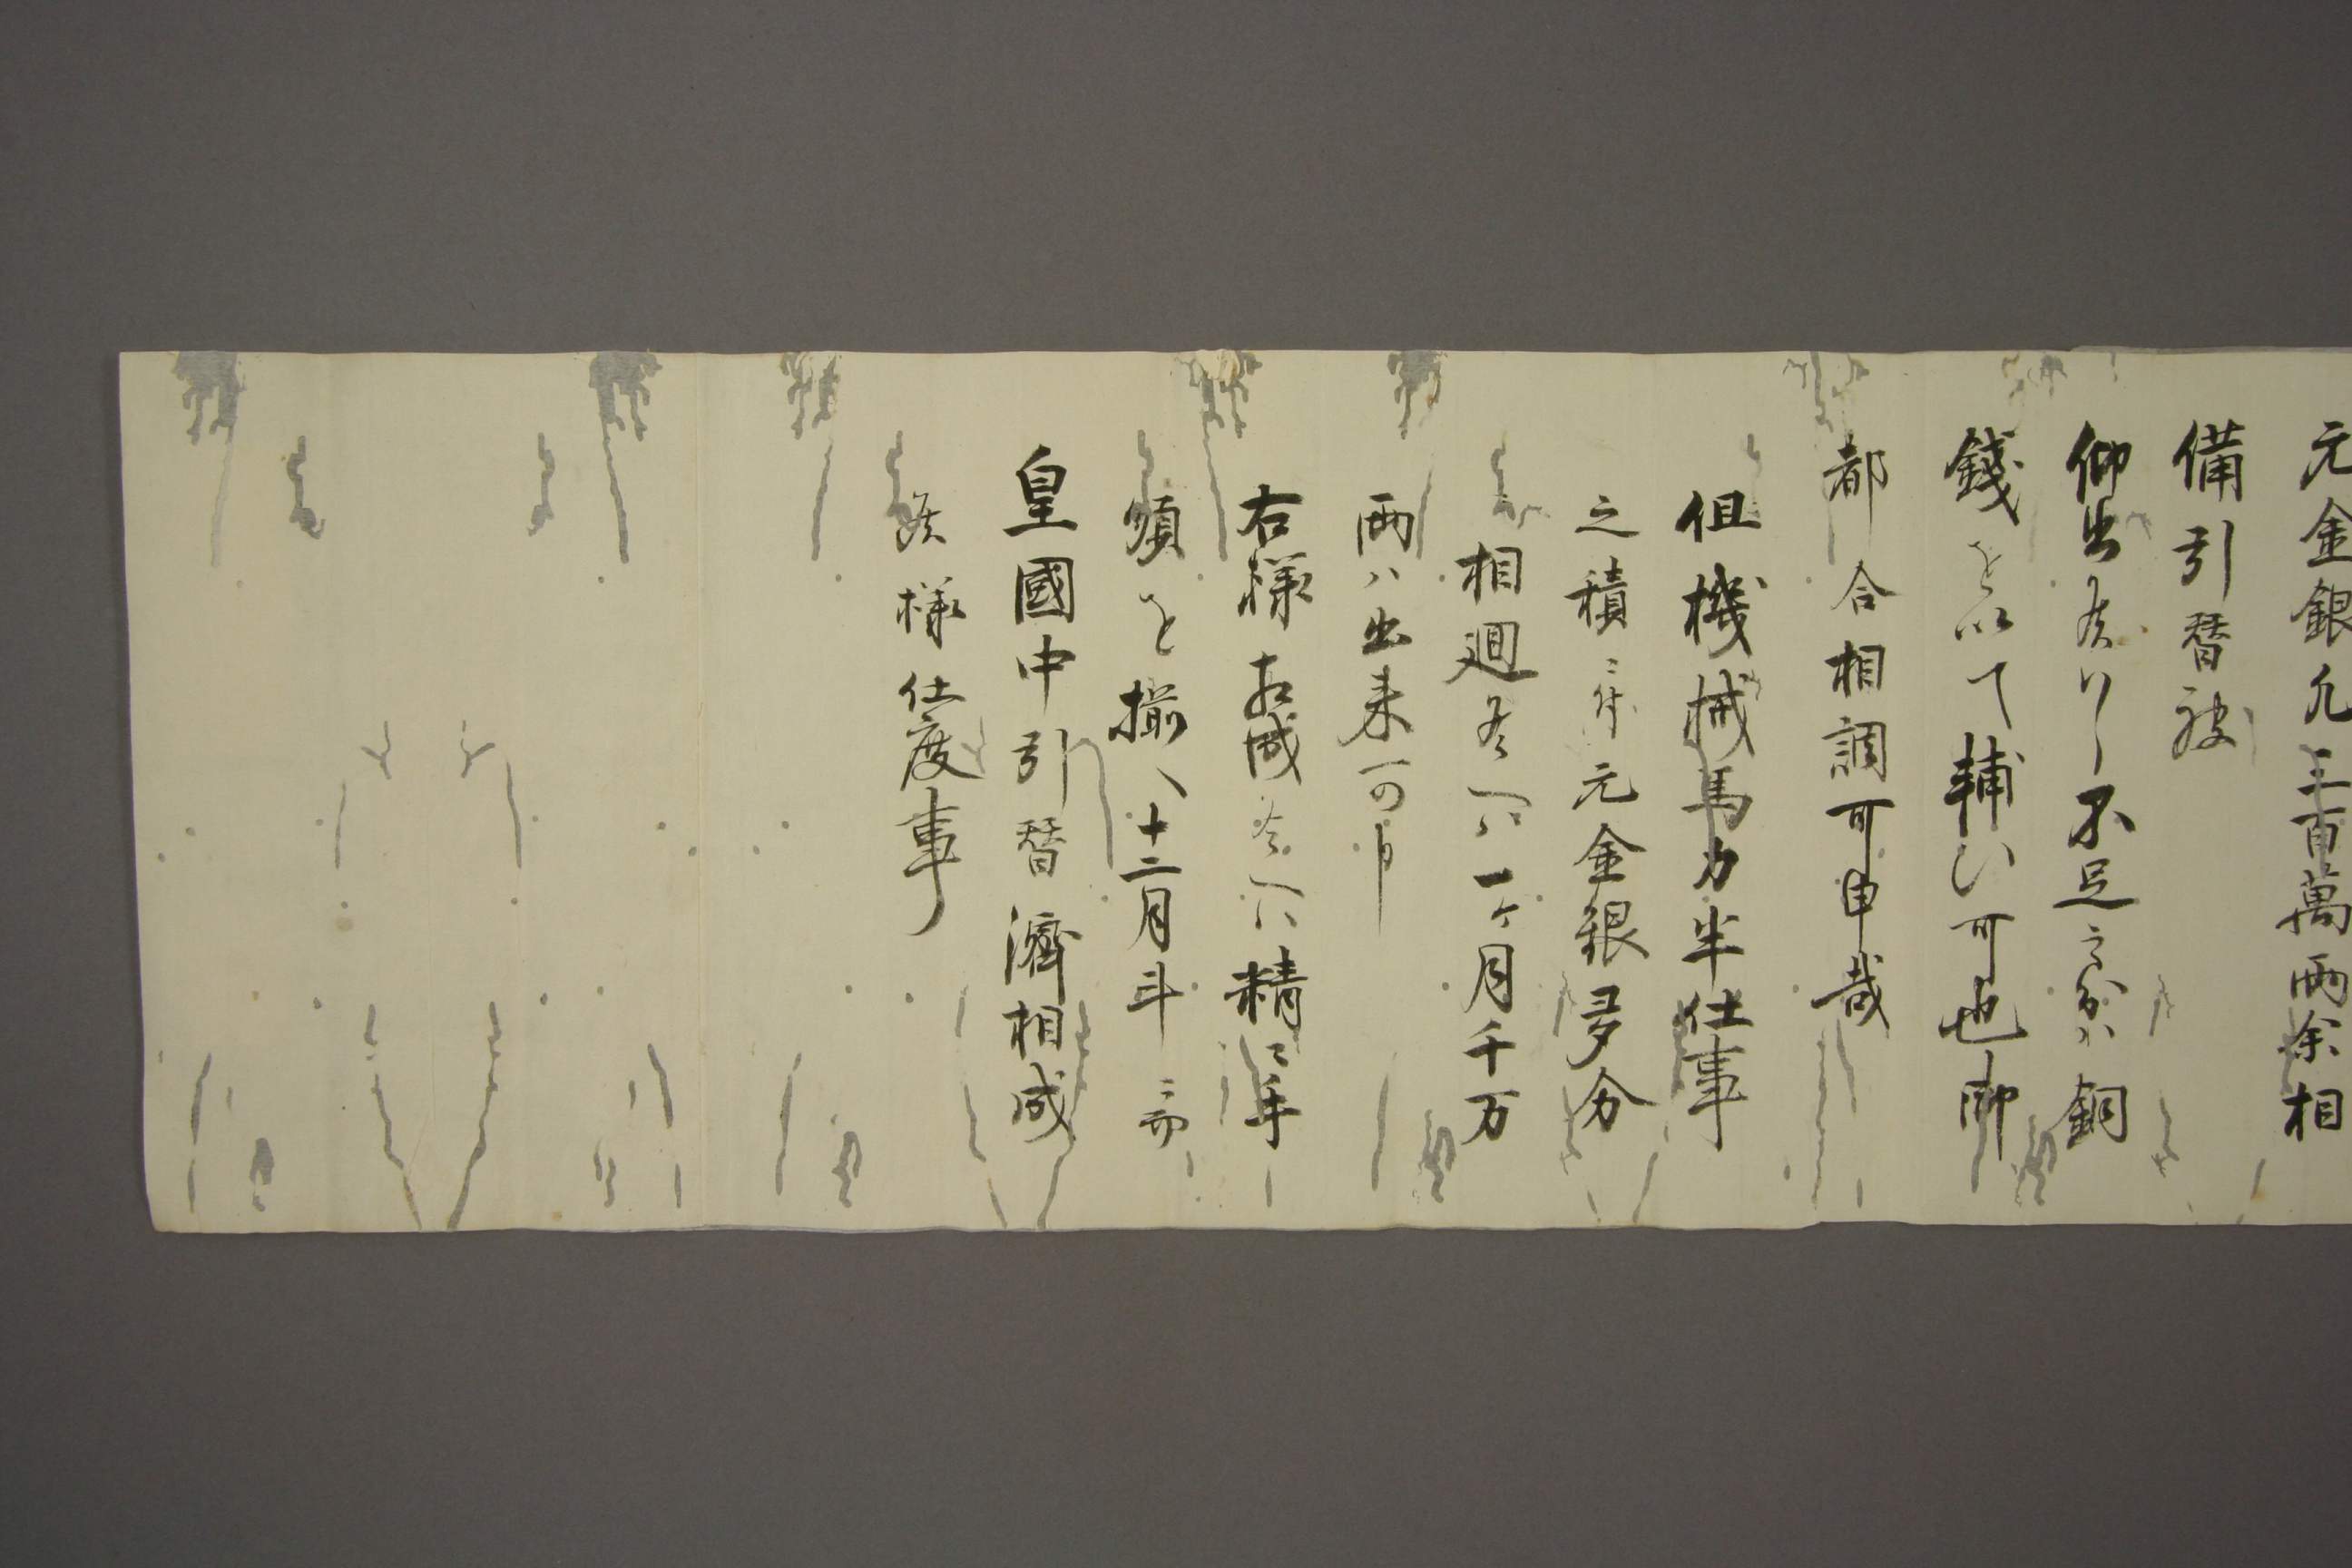 元金銀凡三百萬両余相
備引替被
仰出候ハヽ不足之分ハ銅
錢を以て輔ひ可也御
都合相調可申哉
但機械馬力半仕事
之積ニ付元金銀多分
相廻候ヘハ一ケ月千万
両ハ出来可申
右様相成候ヘハ精々手
順を揃ヘ十二月斗ニ而
皇國中引替濟相成
候様仕度事